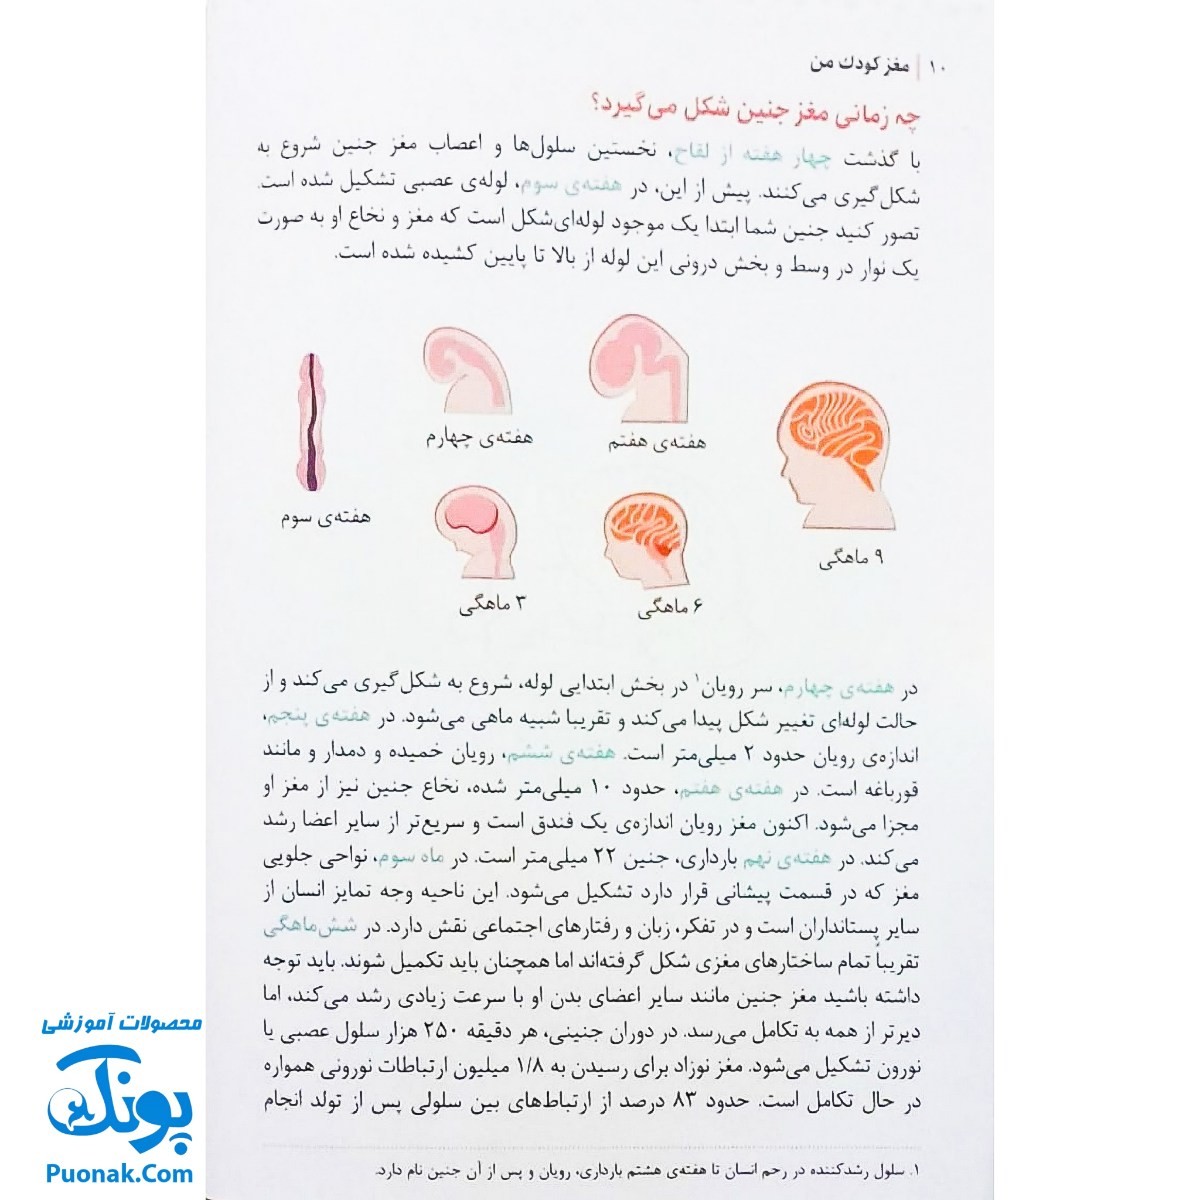 ۱۰ | مغز کودک من
چه زمانی مغز جنین شکل می‌گیرد؟
با گذشت چهار هفته از لقاح، نخستین سلول‌ها و اعصاب مغز جنین شروع به
شکل‌گیری می‌کنند. پیش از این، در هفته‌ی سوم، لوله‌ی عصبی تشکیل شده است.
تصور کنید جنین شما ابتدا یک موجود لوله‌ای‌شکل است که مغز و نخاع او به صورت
یک نوار در وسط و بخش درونی این لوله از بالا تا پایین کشیده شده است.
هفته‌ی سوم
هفته‌ی چهارم
هفته‌ی هفتم
۳ ماهگی
۶ ماهگی
۹ ماهگی
در هفته‌ی چهارم، سر رویان۱ در بخش ابتدایی لوله، شروع به شکل‌گیری می‌کند و از
حالت لوله‌ای تغییر شکل پیدا می‌کند و تقریبا شبیه ماهی می‌شود. در هفته‌ی پنجم،
اندازه‌ی رویان حدود ۲ میلی‌متر است. هفته‌ی ششم، رویان خمیده و دمدار و مانند
قورباغه است. در هفته‌ی هفتم، حدود ۱۰ میلی‌متر شده، نخاع جنین نیز از مغز او
مجزا می‌شود. اکنون مغز رویان اندازه‌ی یک فندق است و سریع‌تر از سایر اعضا رشد
می‌کند. در هفته‌ی نهم بارداری، جنین ۲۲ میلی‌متر است. در ماه سوم، نواحی جلویی
مغز که در قسمت پیشانی قرار دارد تشکیل می‌شود. این ناحیه وجه تمایز انسان از
سایر پستانداران است و در تفکر، زبان و رفتارهای اجتماعی نقش دارد. در شش‌ماهگی
تقریباً تمام ساختارهای مغزی شکل گرفته‌اند اما همچنان باید تکمیل شوند. باید توجه
داشته باشید مغز جنین مانند سایر اعضای بدن او با سرعت زیادی رشد می‌کند، اما
دیرتر از همه به تکامل می‌رسد. در دوران جنینی، هر دقیقه ۲۵۰ هزار سلول عصبی یا
نورون تشکیل می‌شود. مغز نوزاد برای رسیدن به ۱/۸ میلیون ارتباطات نورونی همواره
در حال تکامل است. حدود ۸۳ درصد از ارتباط‌های بین سلولی پس از تولد انجام
۱. سلول رشدکننده در رحم انسان تا هفته‌ی هشتم بارداری، رویان و پس از آن جنین نام دارد.
محصولات آموزشی
پونک
Puonak.Com